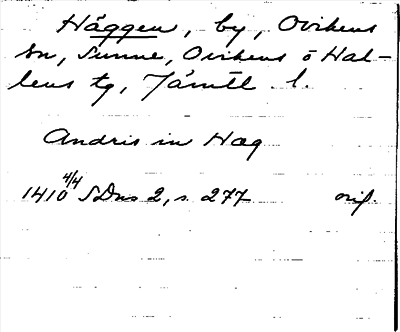 Häggen, by, Ovikens
sn, Sunne, Ovikens o Hal-
lens tg, Jämtl. l.
Andris in Hag
1410 4/4 SDns 2, s. 277 orig.